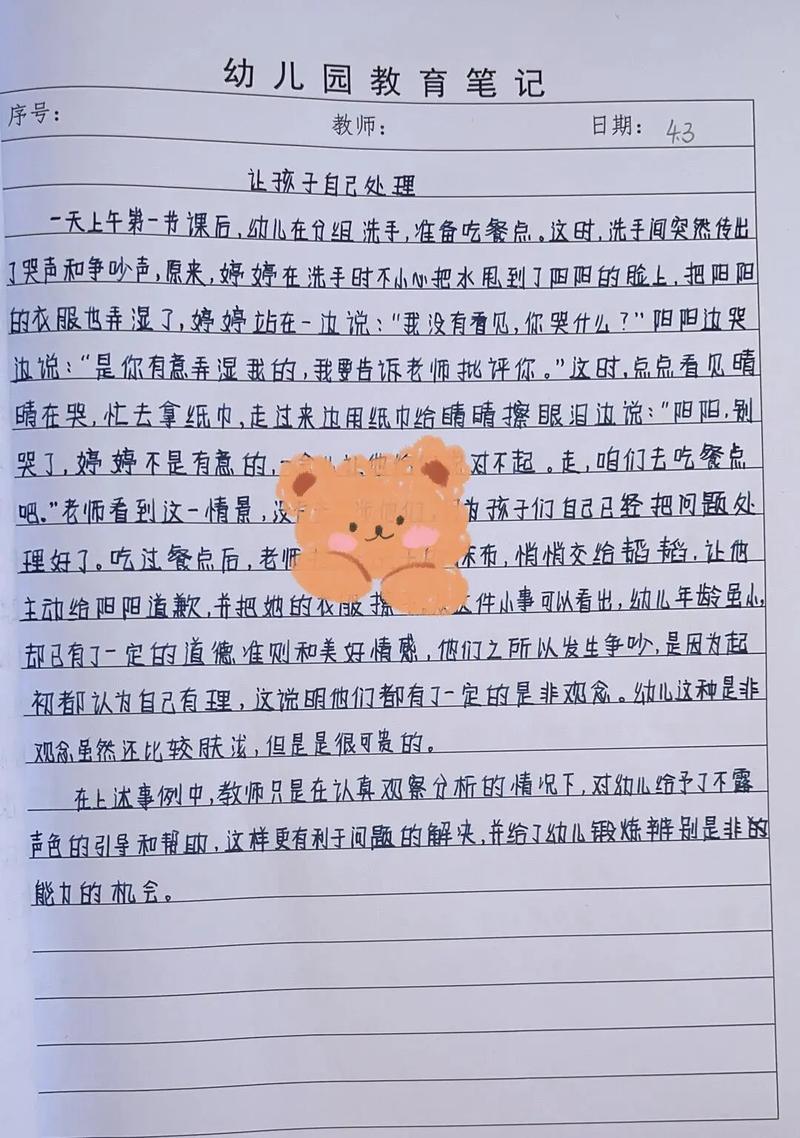 幼儿园教育笔记
序号： 教师： 日期： 4.3
让孩子自己处理
一天上午第一节课后，幼儿在分组洗手，准备吃餐点。这时，洗手间突然传出
了哭声和争吵声，原来，婷婷在洗手时不小心把水甩到了阳阳的脸上，把阳阳
的衣服也弄湿了，婷婷站在一边说：“我没有看见，你哭什么？”阳阳边哭
边说：“是你有意弄湿我的，我要告诉老师批评你。”这时，点点看见晴
晴在哭，忙去拿纸巾，走过来边用纸巾给晴晴擦眼泪边说：“阳阳，别
哭了，婷婷不是有意的，一会儿 对不起。走，咱们去吃餐点
吧。”老师看到这一情景，没 他们， 为孩子们自己已经把问题处
理好了。吃过餐点后，老师 抹布，悄悄交给韬韬，让他
主动给阳阳道歉，并把她的衣服擦 这件小事可以看出，幼儿年龄虽小，
却已有了一定的道德准则和美好情感，他们之所以发生争吵，是因为起
初都认为自己有理，这说明他们都有了一定的是非观念。幼儿这种是非
观念虽然还比较肤浅，但是是很可贵的。
在上述事例中，教师只是在认真观察分析的情况下，对幼儿给予了不露
声色的引导和帮助，这样更有利于问题的解决，并给了幼儿锻炼辨别是非的
能力的机会。